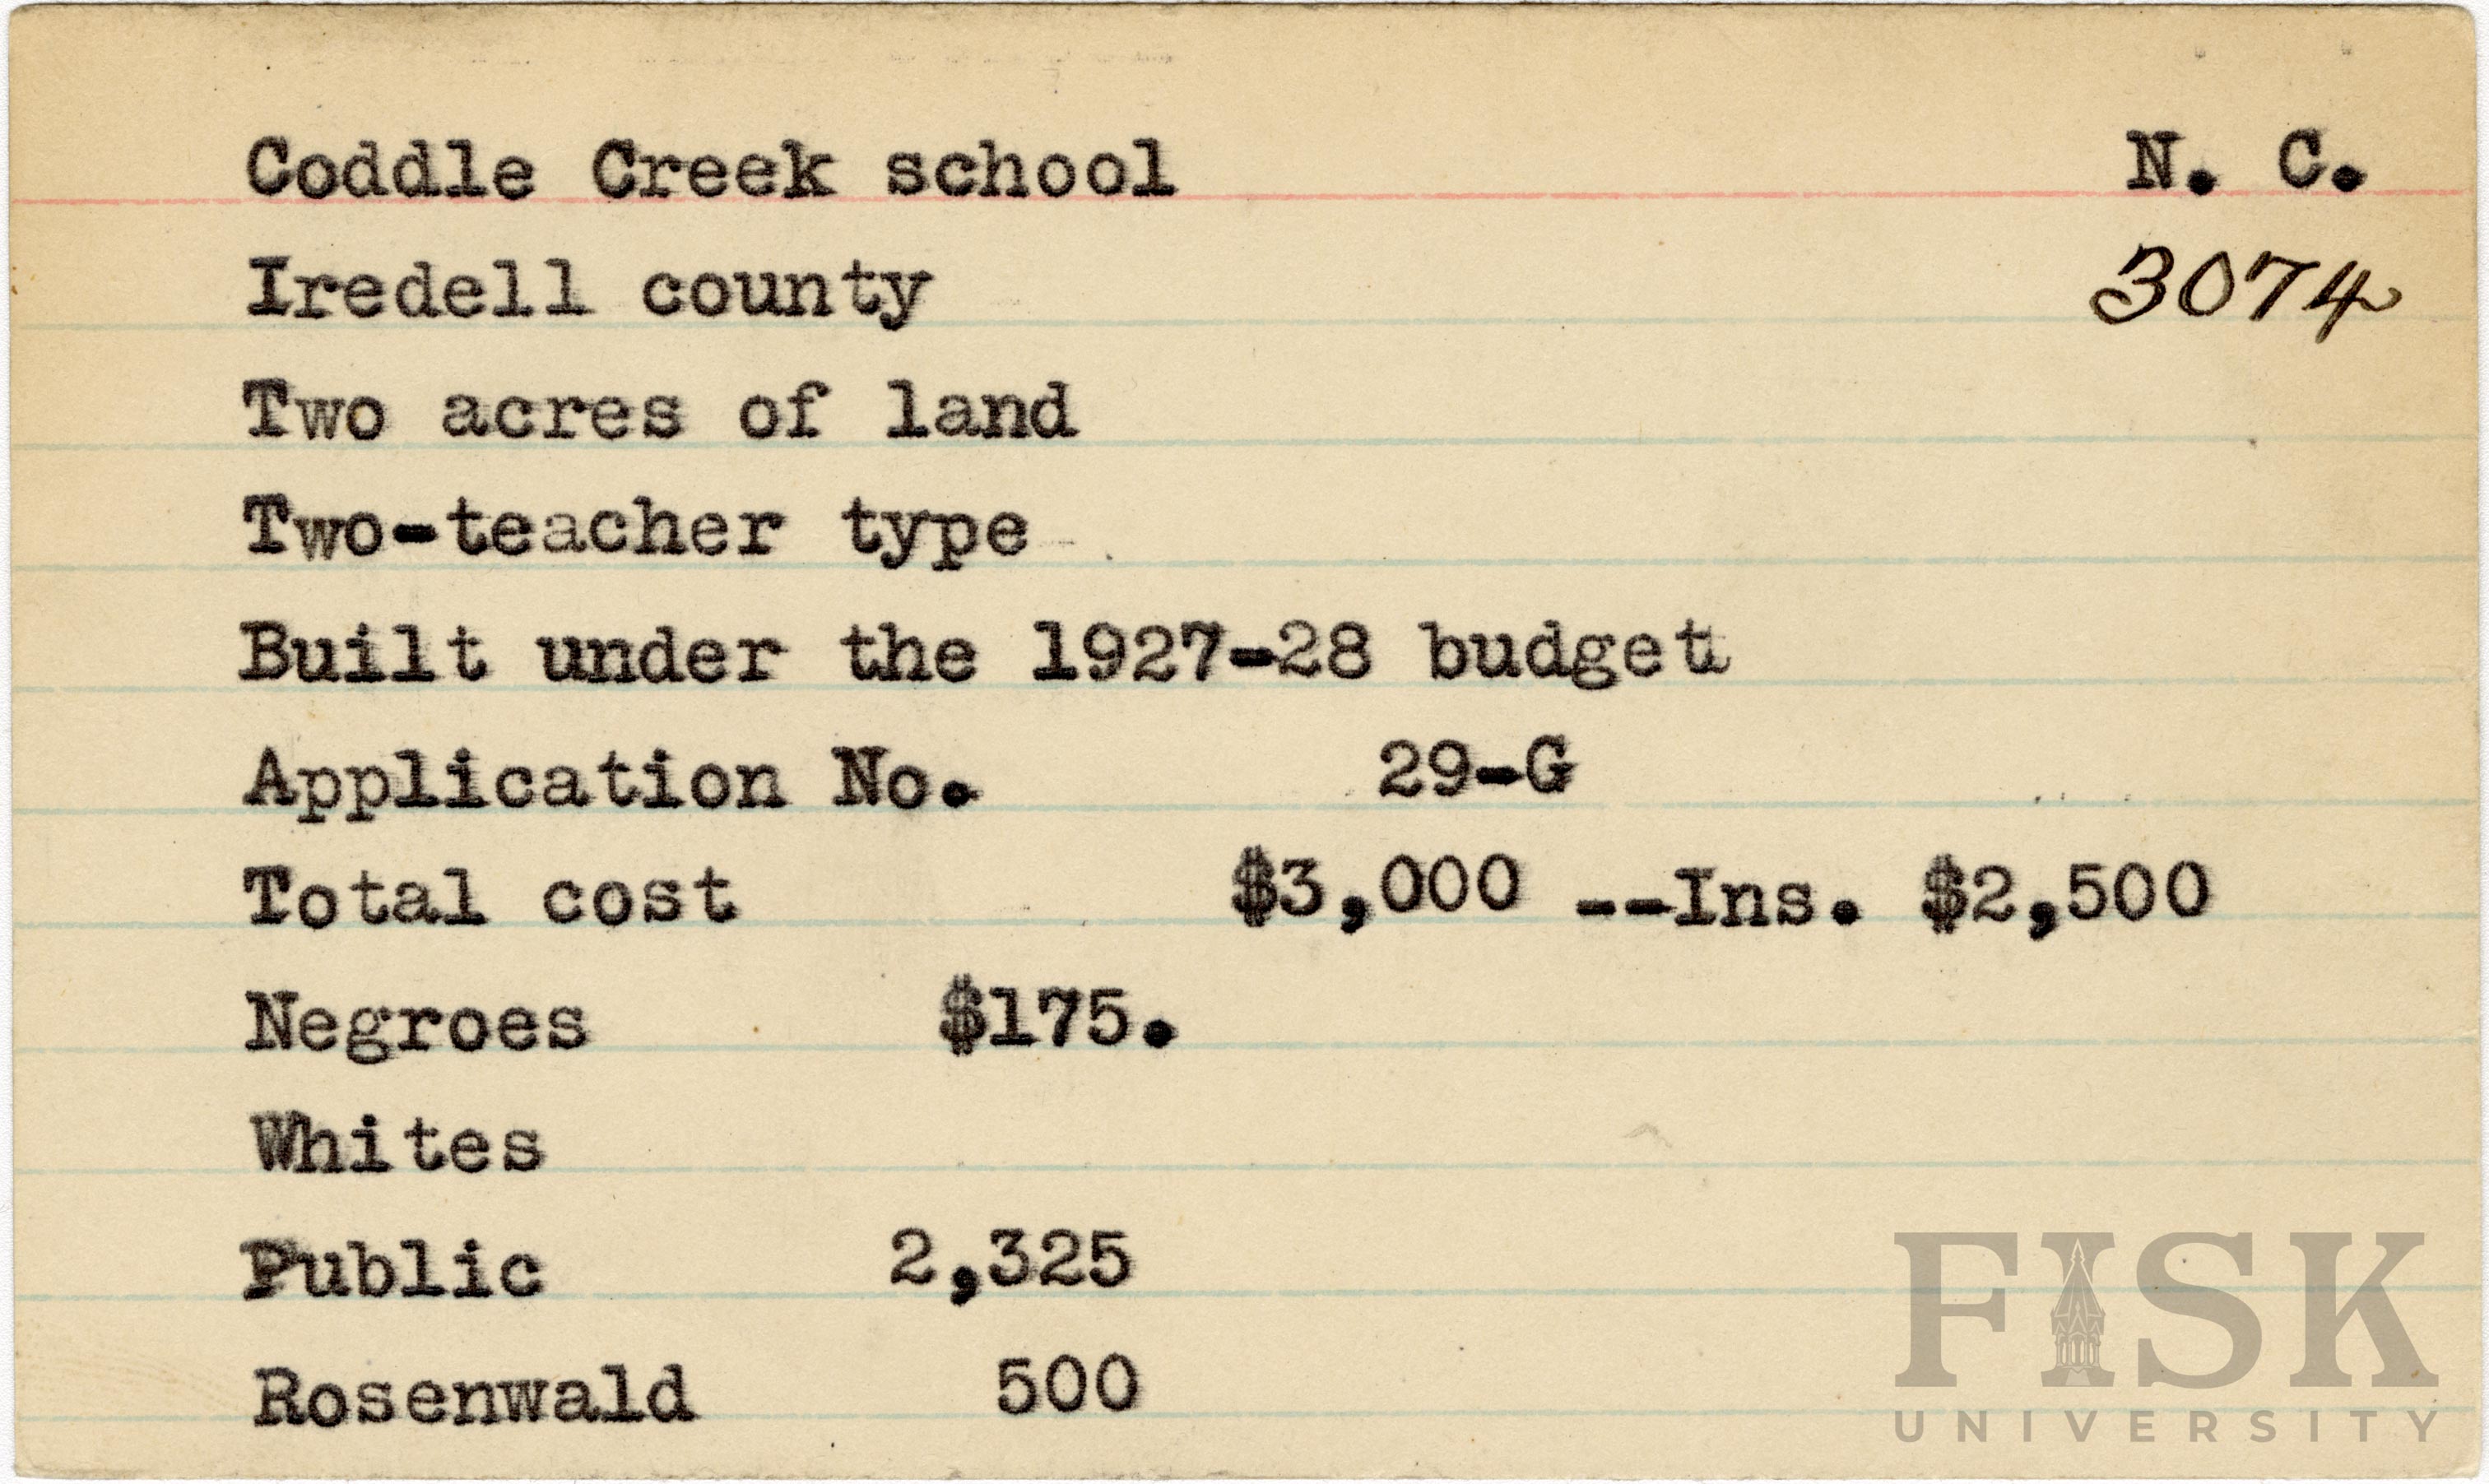 Coddle Creek school N. C.
Iredell county 3074
Two acres of land
Two-teacher type
Built under the 1927-28 budget
Application No. 29-G
Total cost $3,000 --Ins. $2,500
Negroes $175.
Whites
Public 2,325
Rosenwald 500
FISK
UNIVERSITY